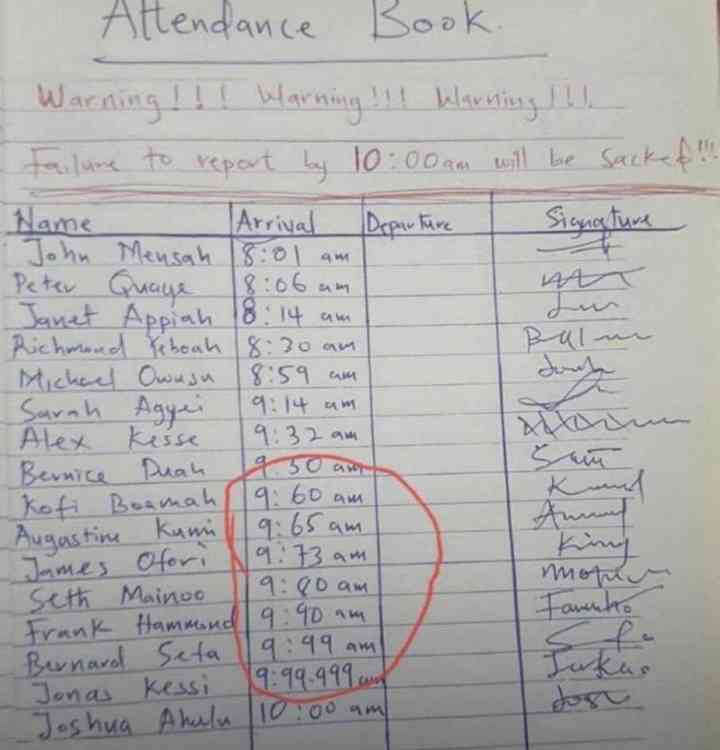 Attendance Book.
Warning!!! Warning!!! Warning!!!
Failure to report by 10:00am will be Sacked!!!
Name Arrival Departure Signature
John Mensah 8:01 am
Peter Quaye 8:06 am
Janet Appiah 8:14 am
Richmond Yeboah 8:30 am
Michael Owusu 8:59 am
Sarah Agyei 9:14 am
Alex Kesse 9:32 am
Bernice Duah 9:50 am
Kofi Boamah 9:60 am
Augustine Kumi 9:65 am
James Ofori 9:73 am
Seth Mainoo 9:80 am
Frank Hammond 9:90 am
Bernard Seta 9:99 am
Jonas Kessi 9:99.999 am
Joshua Ahulu 10:00 am